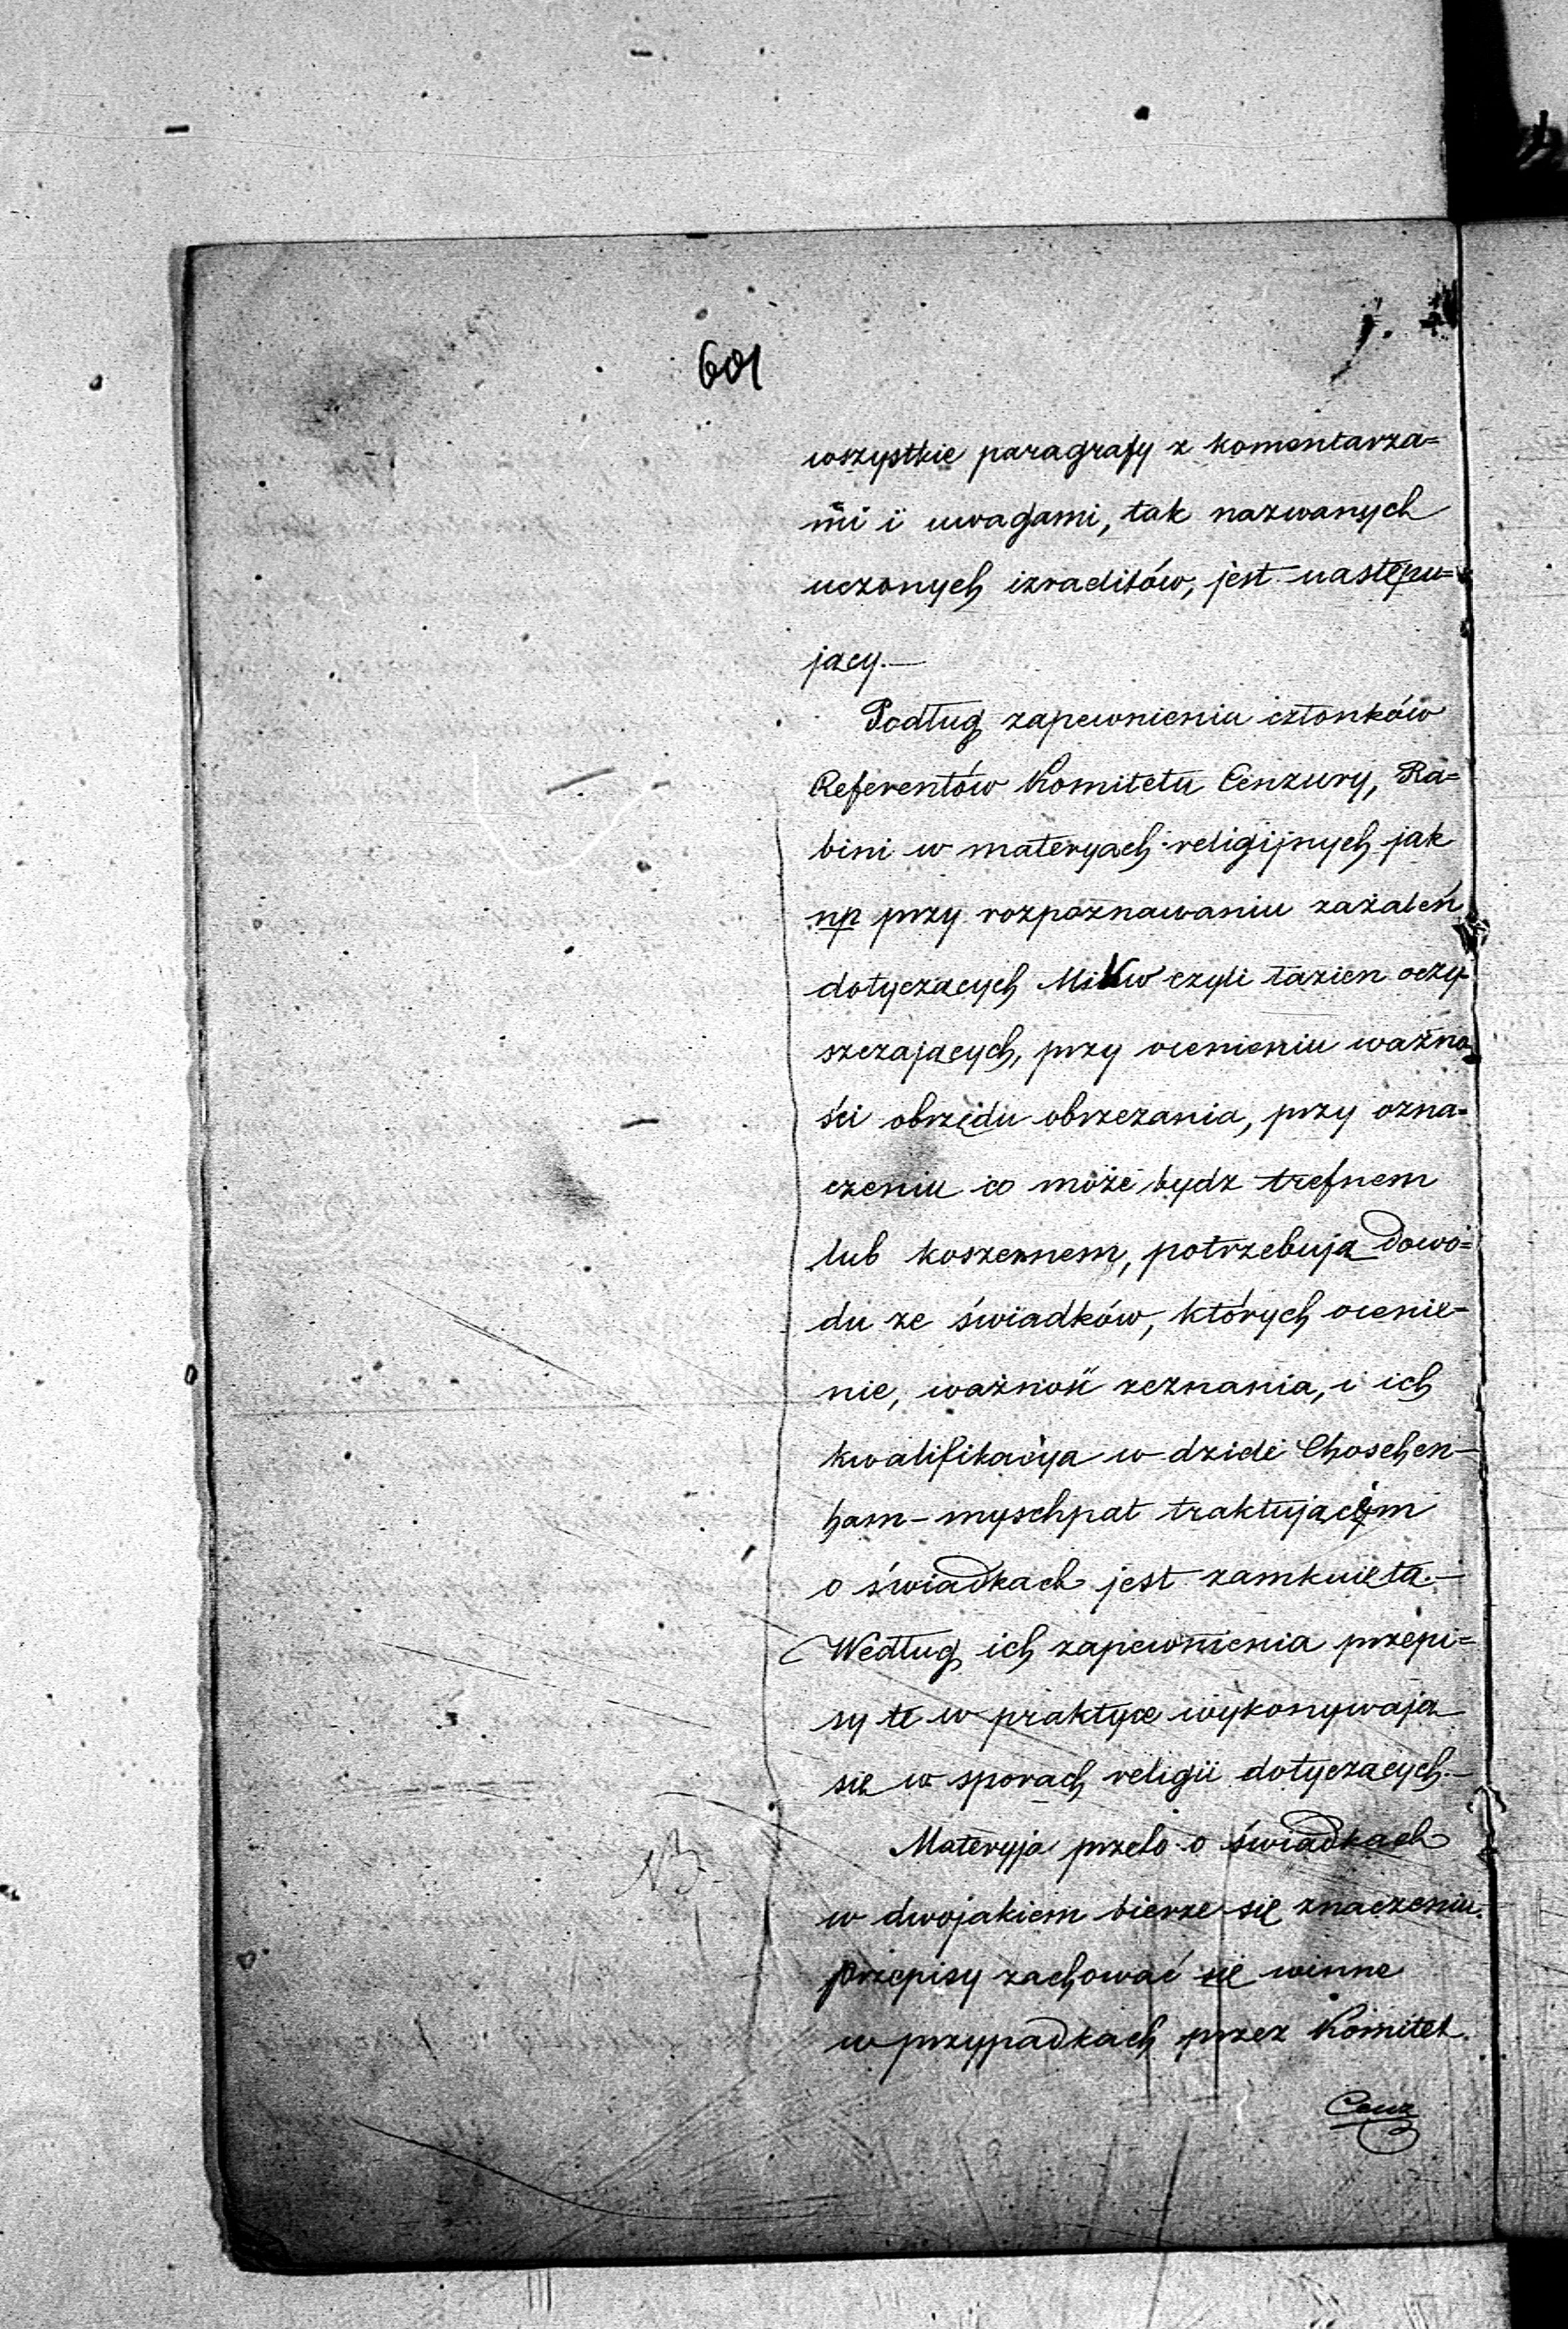 601
wszystkie paragrafy z komentarza=
mi i uwagami, tak nazwanych
uczonych izraelitów, jest następu=
jący.—
Podług zapewnienia członków
Referentów Komitetu Cenzury, Ra=
bini w materyach religijnych jak
np przy rozpoznawaniu zażaleń
dotyczących Mikw czyli łazien oczy-
szczających, przy ocenieniu ważno
ści obrzędu obrzezania, przy ozna=
czeniu co może bydz trefnem
lub koszernem, potrzebują dowo=
du ze świadków, których ocenie-
nie, ważność zeznania, i ich
kwalifikacya w dziele Choschen-
ham-myschpat traktującém
o świadkach jest zamknięta.—
Według ich zapewnienia przepi=
sy te w praktyce wykonywają
się w sporach religii dotyczących.—
Materyja przeto o świadkach
w dwojakiem bierze się znaczeniu.
NB.
Przepisy zachować się winne
w przypadkach przez Komitet
Cenz